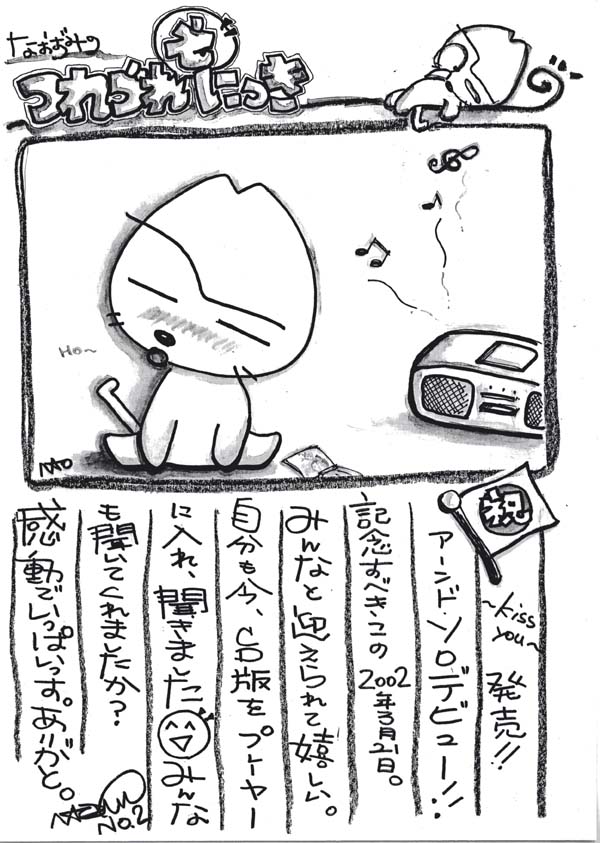 なおおみの
つれづれ
にっき
HO~
NAO
祝
~kiss you~ 発売!!
アーンドソロデビュー!!
記念すべき、この2002年3月21日。
みんなと迎えられて嬉しい。
自分も今、CD版をプレーヤー
に入れ、聞きましたみんな
も聞いてくれましたか?
感動でいっぱいっす。ありがと。
No.2